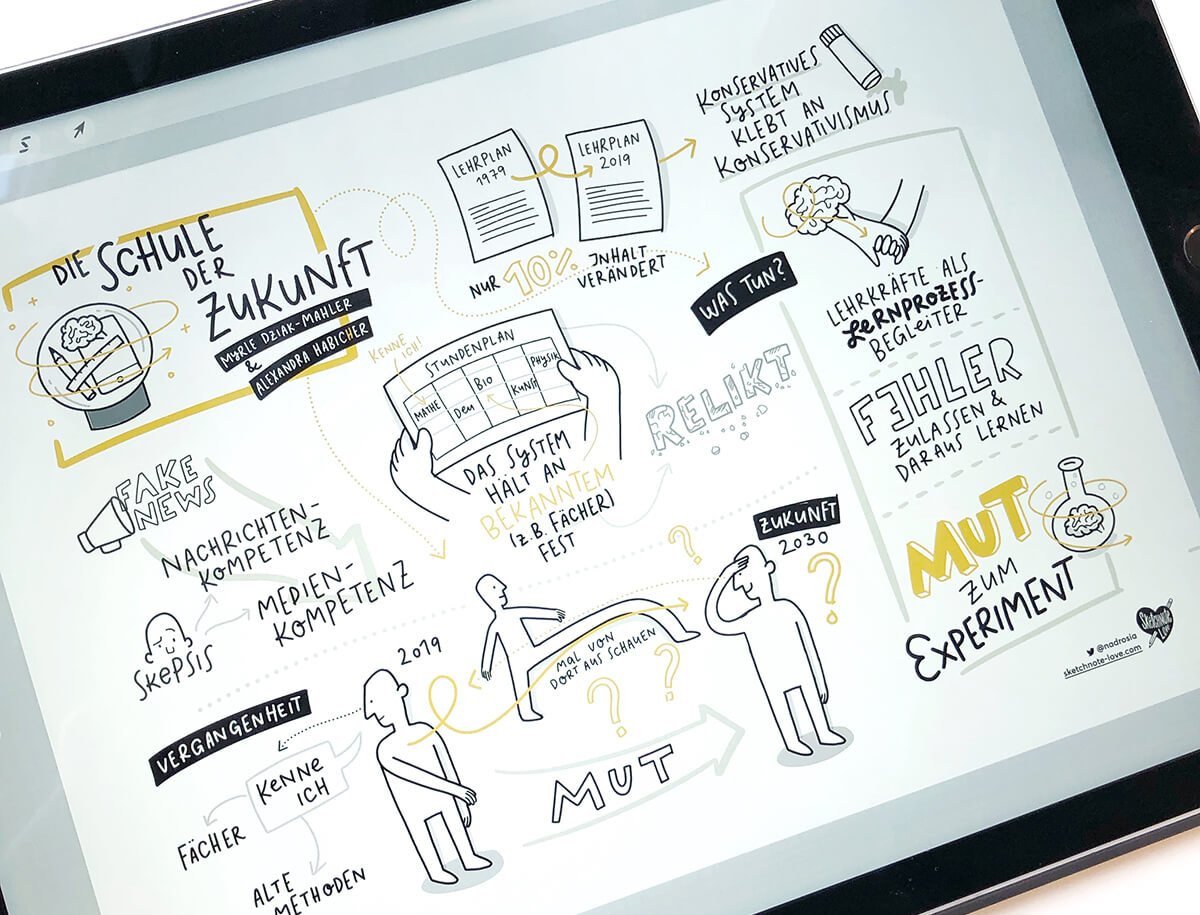 DIE SCHULE
DER
ZUKUNFT
MYRLE DZIAK-MAHLER
&
ALEXANDRA HABICHER
LEHRPLAN
1979
LEHRPLAN
2019
NUR 10% INHALT
VERÄNDERT
KONSERVATIVES
SYSTEM
KLEBT AN
KONSERVATIVISMUS
KENNE
ICH!
STUNDENPLAN
MATHE
Deu
BIO
KUNST
PHYSIK
DAS SYSTEM
HÄLT AN
BEKANNTEM
(Z.B. FÄCHER)
FEST
RELIKT
WAS TUN?
LEHRKRÄFTE ALS
LERNPROZESS-
BEGLEITER
FEHLER
ZULASSEN &
DARAUS LERNEN
MUT
ZUM
EXPERIMENT
FAKE
NEWS
NACHRICHTEN-
KOMPETENZ
MEDIEN-
KOMPETENZ
SKEPSIS
VERGANGENHEIT
KENNE
ICH
FÄCHER
ALTE
METHODEN
2019
MAL VON
DORT AUS SCHAUEN
? ? ? ?
MUT
ZUKUNFT
2030
Sketchnote
Love
@nadrosia
sketchnote-love.com